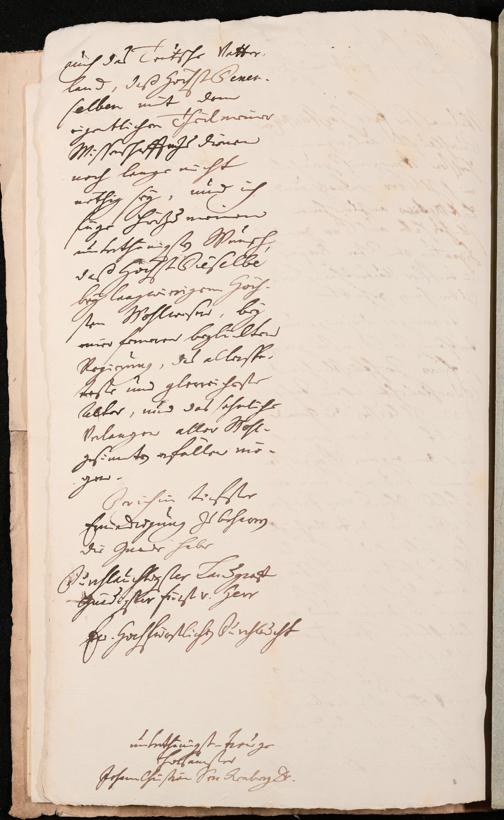 auch das Teütsche Vatter-
land, daß Höchst Denen-
selben mit dem
eigentlichen Theil meiner
Wissenschafft zu dienen
noch lange nicht
nöthig sey, und ich
füge hierzu meinen
unterthänigsten Wunsch,
daß Höchst Dieselbe
bey langwierigem Höch-
sten Wohlwesen, bey
einer ferneren beglückten
Regierung, das allerspä-
teste und glorreichste
Alter, und das sehnliche
Verlangen aller Wohl-
gesinnten erfüllen mö-
gen.
Der ich in tiefster
Erniedrigung
die Gnade habe
Durchläuchtigster Landgraf
Gnädigster Fürst u. Herr
Ew. Hochfürstlichen Durchlaucht
unterthänigst-treüge-
horsamster
Johann Christian Senckenberg D.